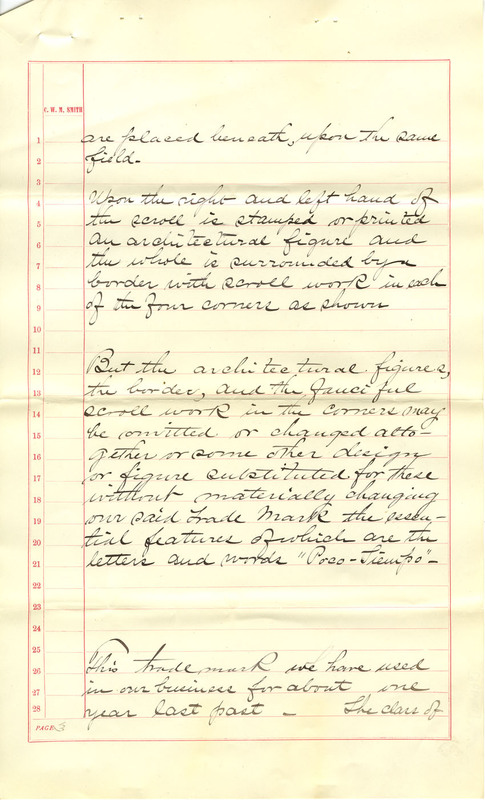 C. W. M. SMITH
1 are placed beneath, upon the same
2 field.
3
4 Upon the right and left hand of
5 the scroll is stamped or printed
6 an architectural figure and
7 the whole is surrounded by a
8 border with scroll work in each
9 of the four corners as shown
10
11
12 But the architectural figures,
13 the border, and the fanciful
14 scroll work in the corners may
15 be omitted or changed alto-
16 gether or some other design
17 or figure substituted for these
18 without materially changing
19 our said Trade Mark the essen-
20 tial features of which are the
21 letters and words "Poco-Tiempo"-
22
23
24
25
26 This trade mark we have used
27 in our business for about one
28 year last past - The class of
PAGE 3